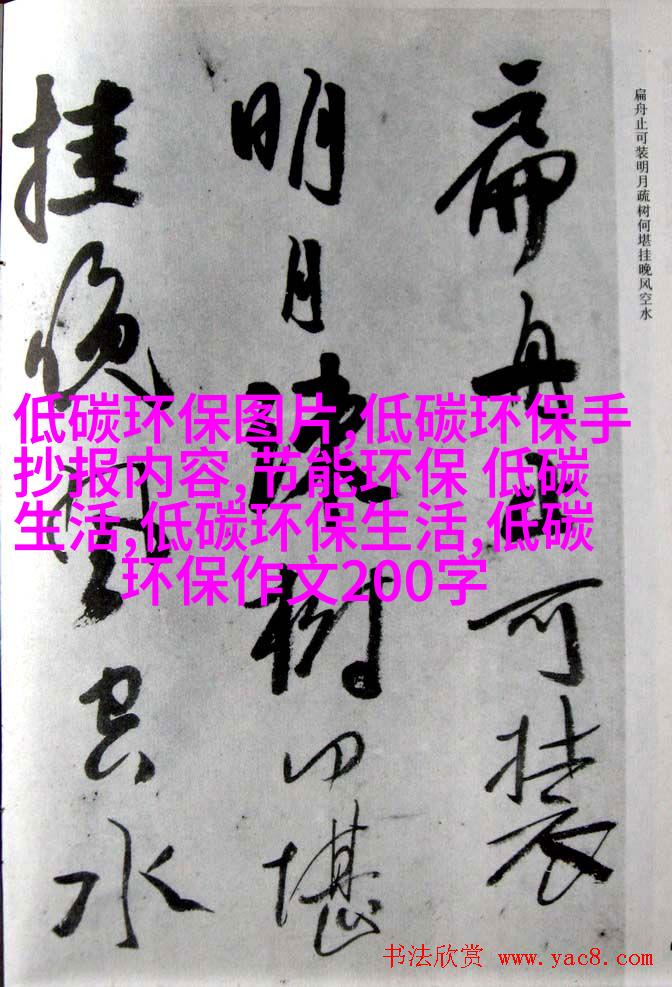 扁舟止可装
明月疏树何堪
挂晚风空水
扁舟止可装明月疏树何堪挂晚风空水
低碳环保图片,低碳环保手
抄报内容,节能环保 低碳
生活,低碳环保生活,低碳
环保作文200字
书法欣赏 www.yac8.com